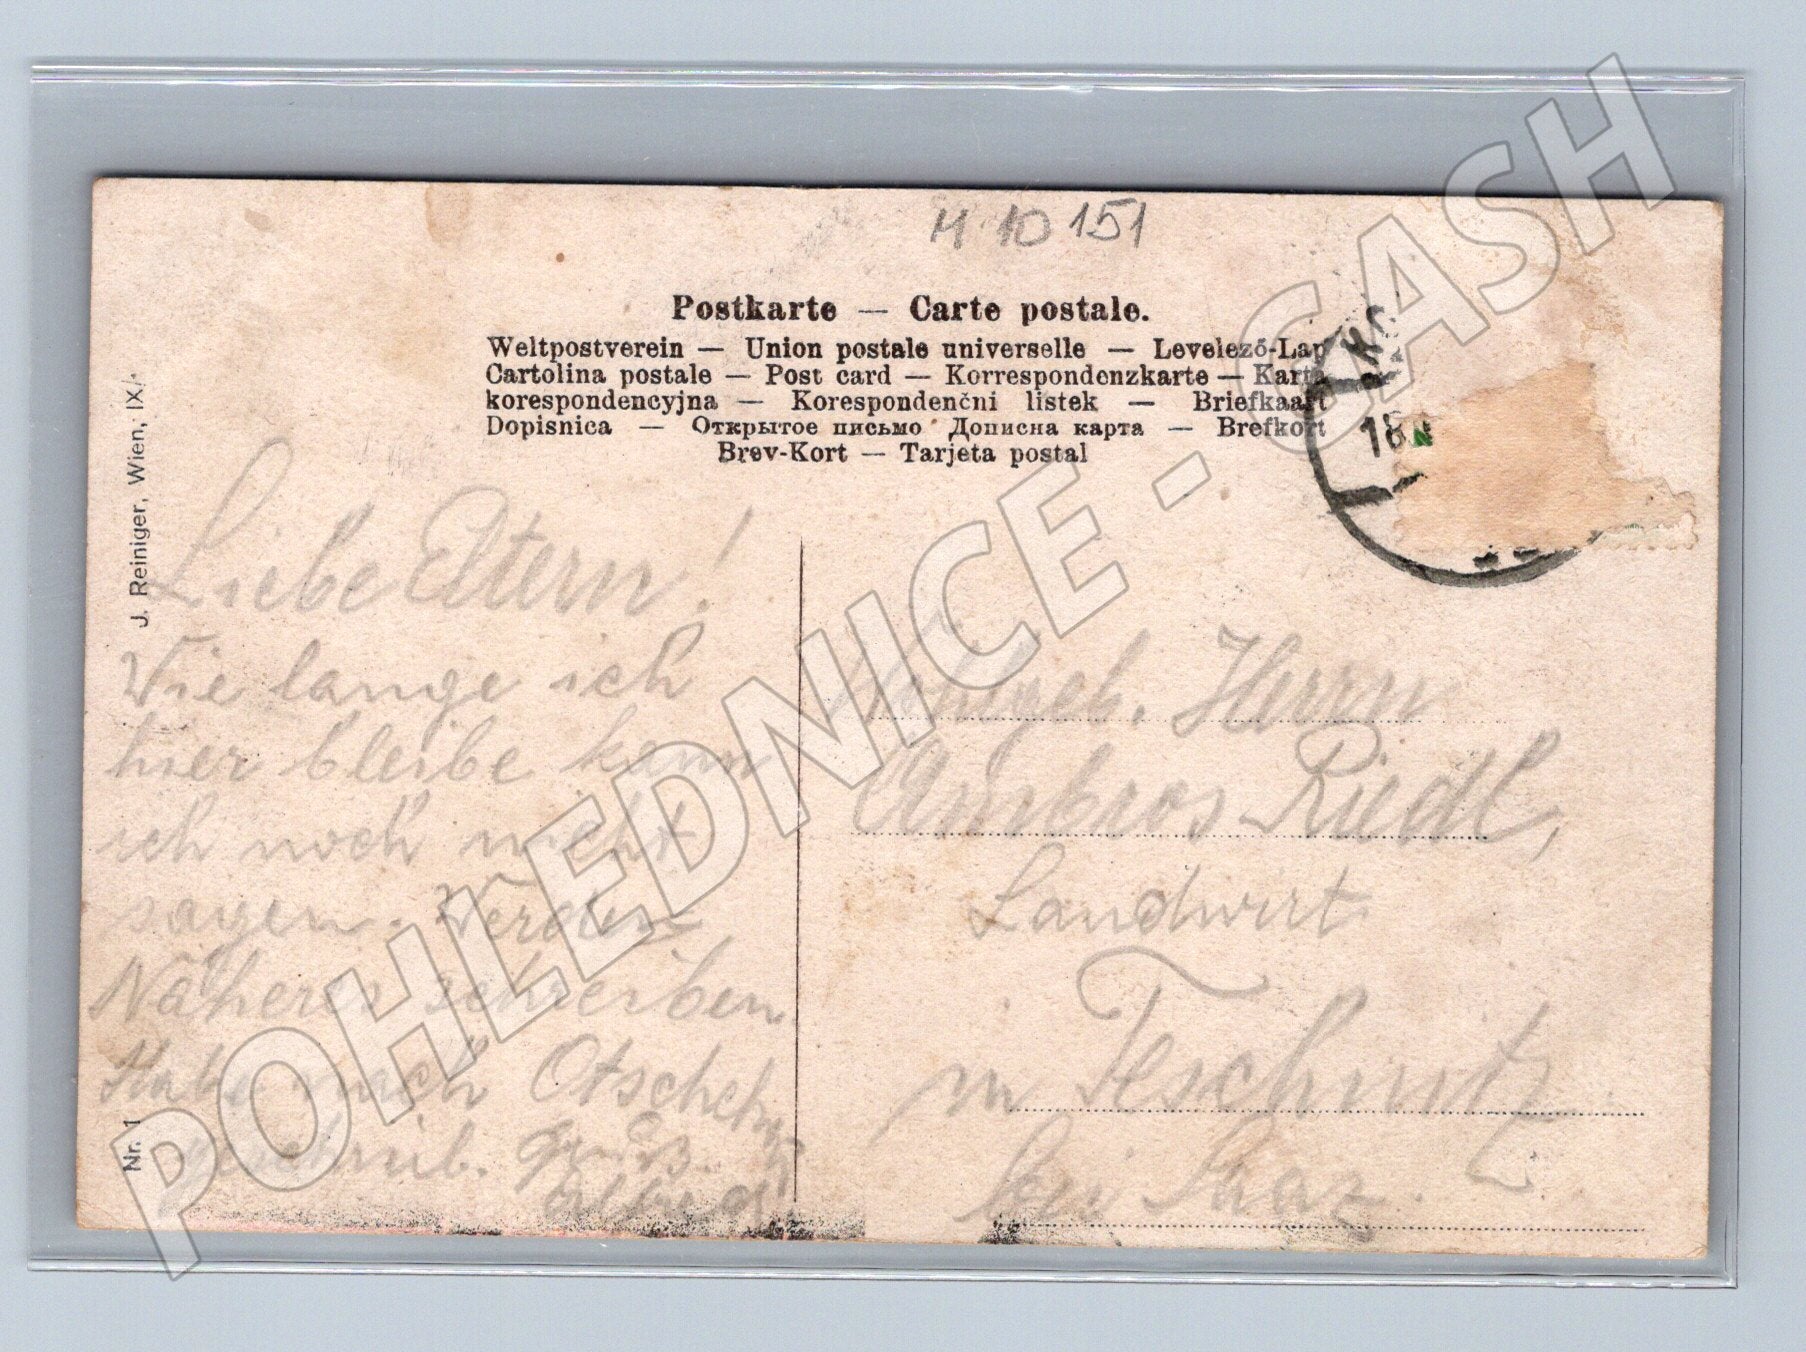 M 10 151
Postkarte — Carte postale.
Weltpostverein — Union postale universelle — Levelező-Lap
Cartolina postale — Post card — Korrespondenzkarte — Karta
korespondencyjna — Korespondenčni listek — Briefkaart
Dopisnica — Открытое письмо Дописна карта — Brefkort
Brev-Kort — Tarjeta postal
J. Reiniger, Wien, IX/
Nr. 1
18
Liebe Eltern!
Wie lange ich
hier bleibe kann
ich noch nicht
sagen. Werde
Näheres schreiben.
Habe nach
Gruß.
Herrn
Ambros Riedl,
Landwirt
in Teschnitz
bei Saaz.
POHLEDNICE - GASH